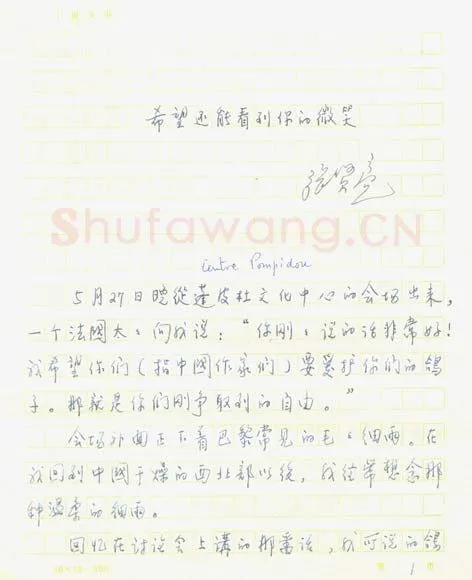 希望还能看到你的微笑
张贤亮
Shufawang.CN
Centre Pompidou
5月27日晚從蓬皮杜文化中心的会场出来，
一个法國太〻向我说：“你刚〻说的话非常好！
我希望你们（指中國作家们）要爱护你们的鸽
子。那就是你们刚争取到的自由。”
会场外面正下着巴黎常見的毛〻细雨。在
我回到中國干燥的西北部以後，我经常想念那
种温柔的细雨。
回忆在讨论会上講的那番话，我所说的鸽
1